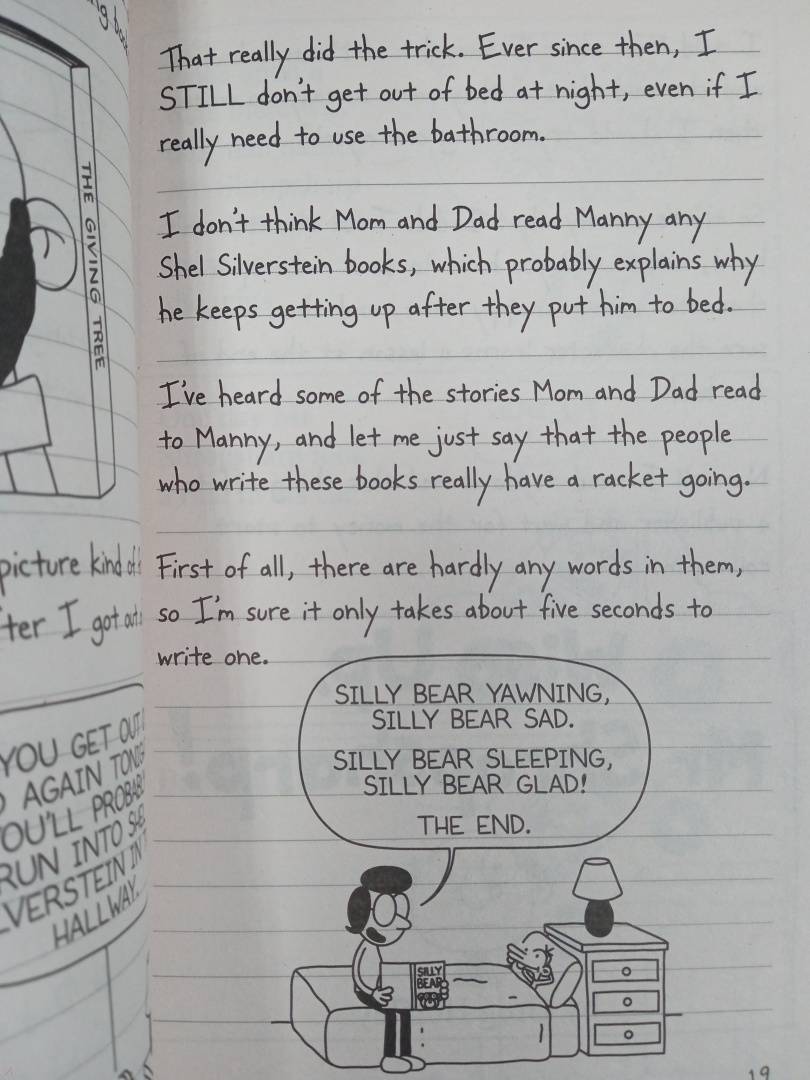 THE GIVING TREE
picture kind of
ter I got out
YOU GET OUT
AGAIN TONIGHT
YOU'LL PROBABLY
RUN INTO SHEL
LVERSTEIN IN
HALLWAY.
That really did the trick. Ever since then, I
STILL don't get out of bed at night, even if I
really need to use the bathroom.
I don't think Mom and Dad read Manny any
Shel Silverstein books, which probably explains why
he keeps getting up after they put him to bed.
I've heard some of the stories Mom and Dad read
to Manny, and let me just say that the people
who write these books really have a racket going.
First of all, there are hardly any words in them,
so I'm sure it only takes about five seconds to
write one.
SILLY BEAR YAWNING,
SILLY BEAR SAD.
SILLY BEAR SLEEPING,
SILLY BEAR GLAD!
THE END.
SILLY
BEAR
19